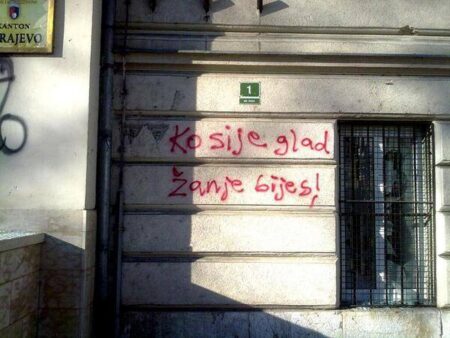 KANTON
RAJEVO
1
Ko sije glad
žanje bijes!